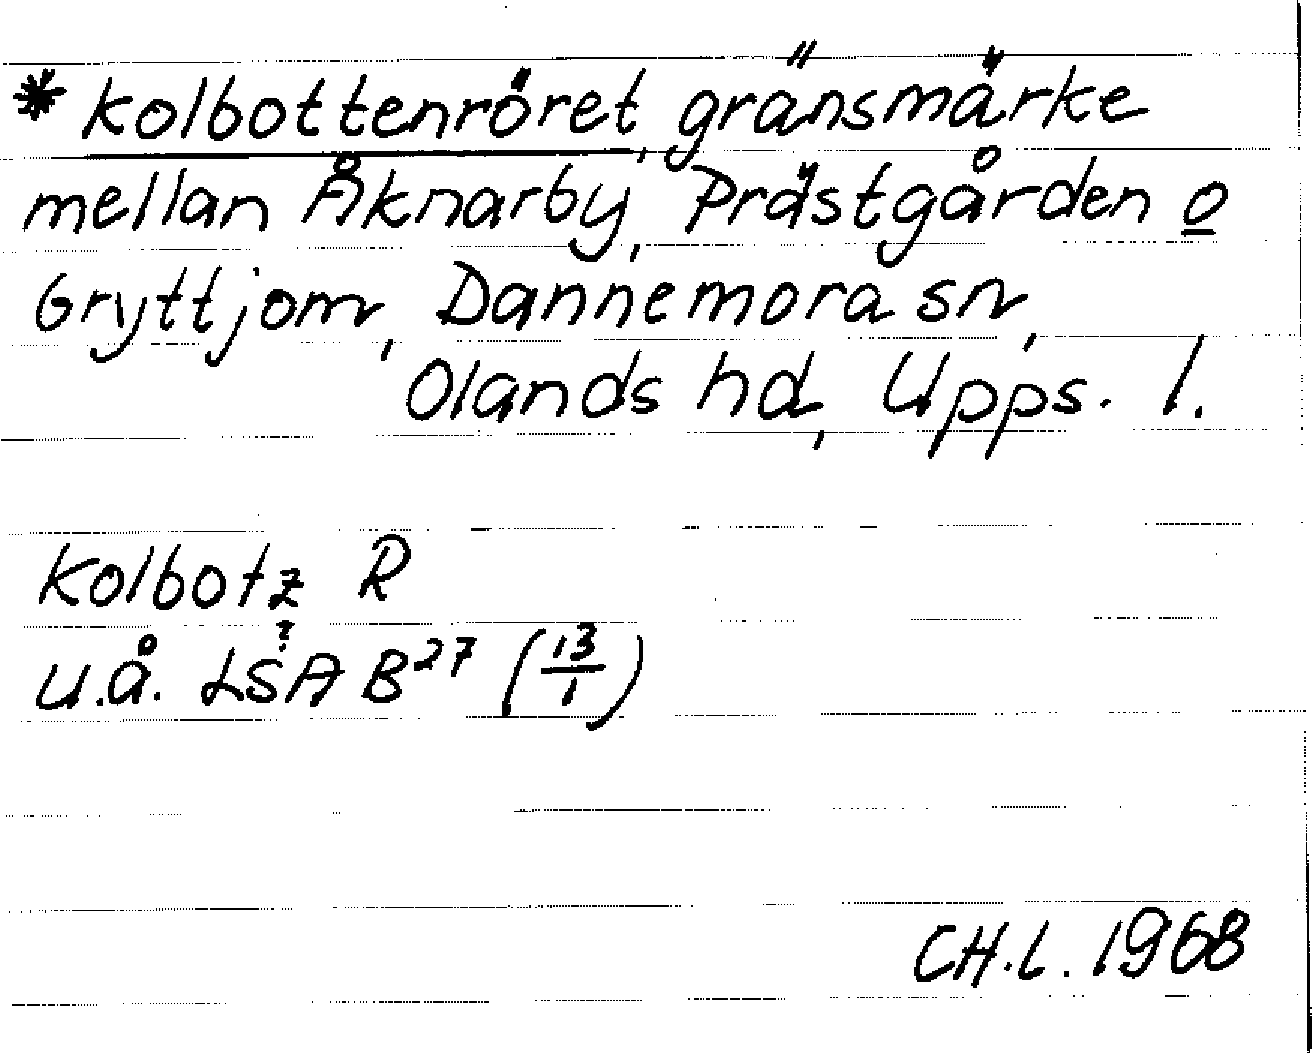 * Kolbottenröret, gränsmärke
mellan Åknarby, Prästgården o
Gryttjom, Dannemora sn,
Olands hd, Upps. l.
Kolbotz R
?
u.å. LSA B27 (13/1)
CH.L. 1968